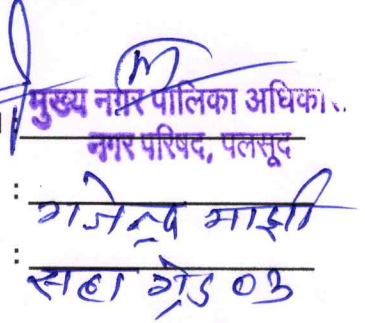 मुख्य नगर पालिका अधिका..
नगर परिषद, पलसूद
: गजेन्द्र माझी
: सहा ग्रेड 03